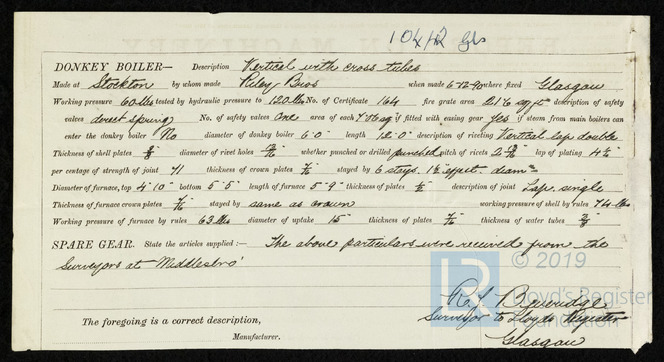 DONKEY BOILER— Description Vertical with cross tubes
Made at Stockton by whom made Riley Bros when made 6-12-90 where fixed Glasgow
Working pressure 60 lbs tested by hydraulic pressure to 120 lbs No. of Certificate 164 fire grate area 21½ sq ft description of safety
valves direct spring No. of safety valves One area of each 7.06 sq" if fitted with easing gear Yes if steam from main boilers can
enter the donkey boiler No diameter of donkey boiler 6'0" length 12'0" description of riveting Vertical lap double
Thickness of shell plates diameter of rivet holes whether punched or drilled punched pitch of rivets lap of plating
per centage of strength of joint 71 thickness of crown plates stayed by 6 stays. diam
Diameter of furnace, top 4'10" bottom 5'5" length of furnace 5'9" thickness of plates description of joint Lap single
Thickness of furnace crown plates stayed by same as crown working pressure of shell by rules 74 lbs
Working pressure of furnace by rules 63 lbs diameter of uptake 15" thickness of plates thickness of water tubes
SPARE GEAR. State the articles supplied:— The above particulars were received from the
Surveyors at Middlesbro'
© 2019
LR Lloyd's Register
Foundation
R. L. Beveridge
Surveyor to Lloyds Register
Glasgow
The foregoing is a correct description,
Manufacturer.